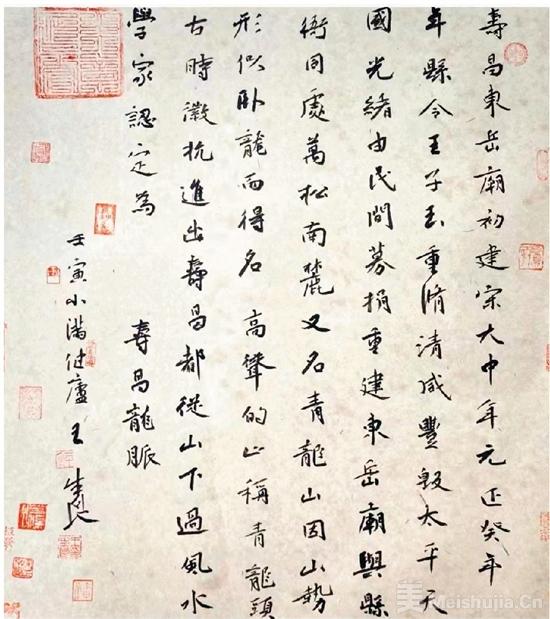 壽昌東岳廟初建宗大中年元正癸年
年縣令王子玉重脩清咸豐毀太平天
國光緒由民間募捐重建東岳廟與縣
衙同處萬松南麓又名青龍山因山勢
形似卧龍而得名 高聳的山稱青龍頭
古時徽杭進出壽昌都從山下過風水
學家認定為 壽昌龍脈
壬寅小滿 廬王
美 Meishujia.Cn